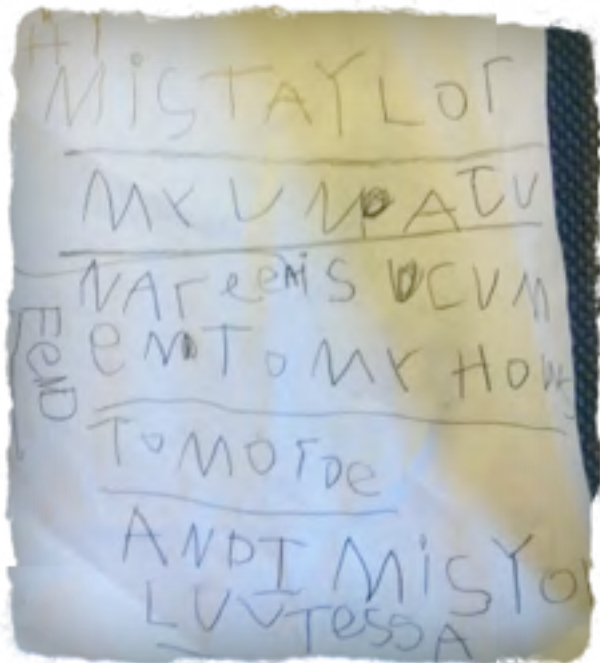 HI
MiSTAYLOr
NArеeMiS UCVM
FeND
eN TO MY HOWS
TOMOrOe
ANDI MiSYOU
LUVTessA